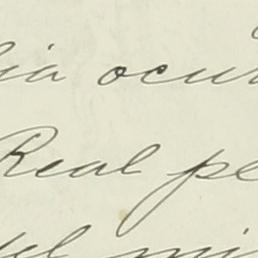 ia ocur
Real pe
el mi